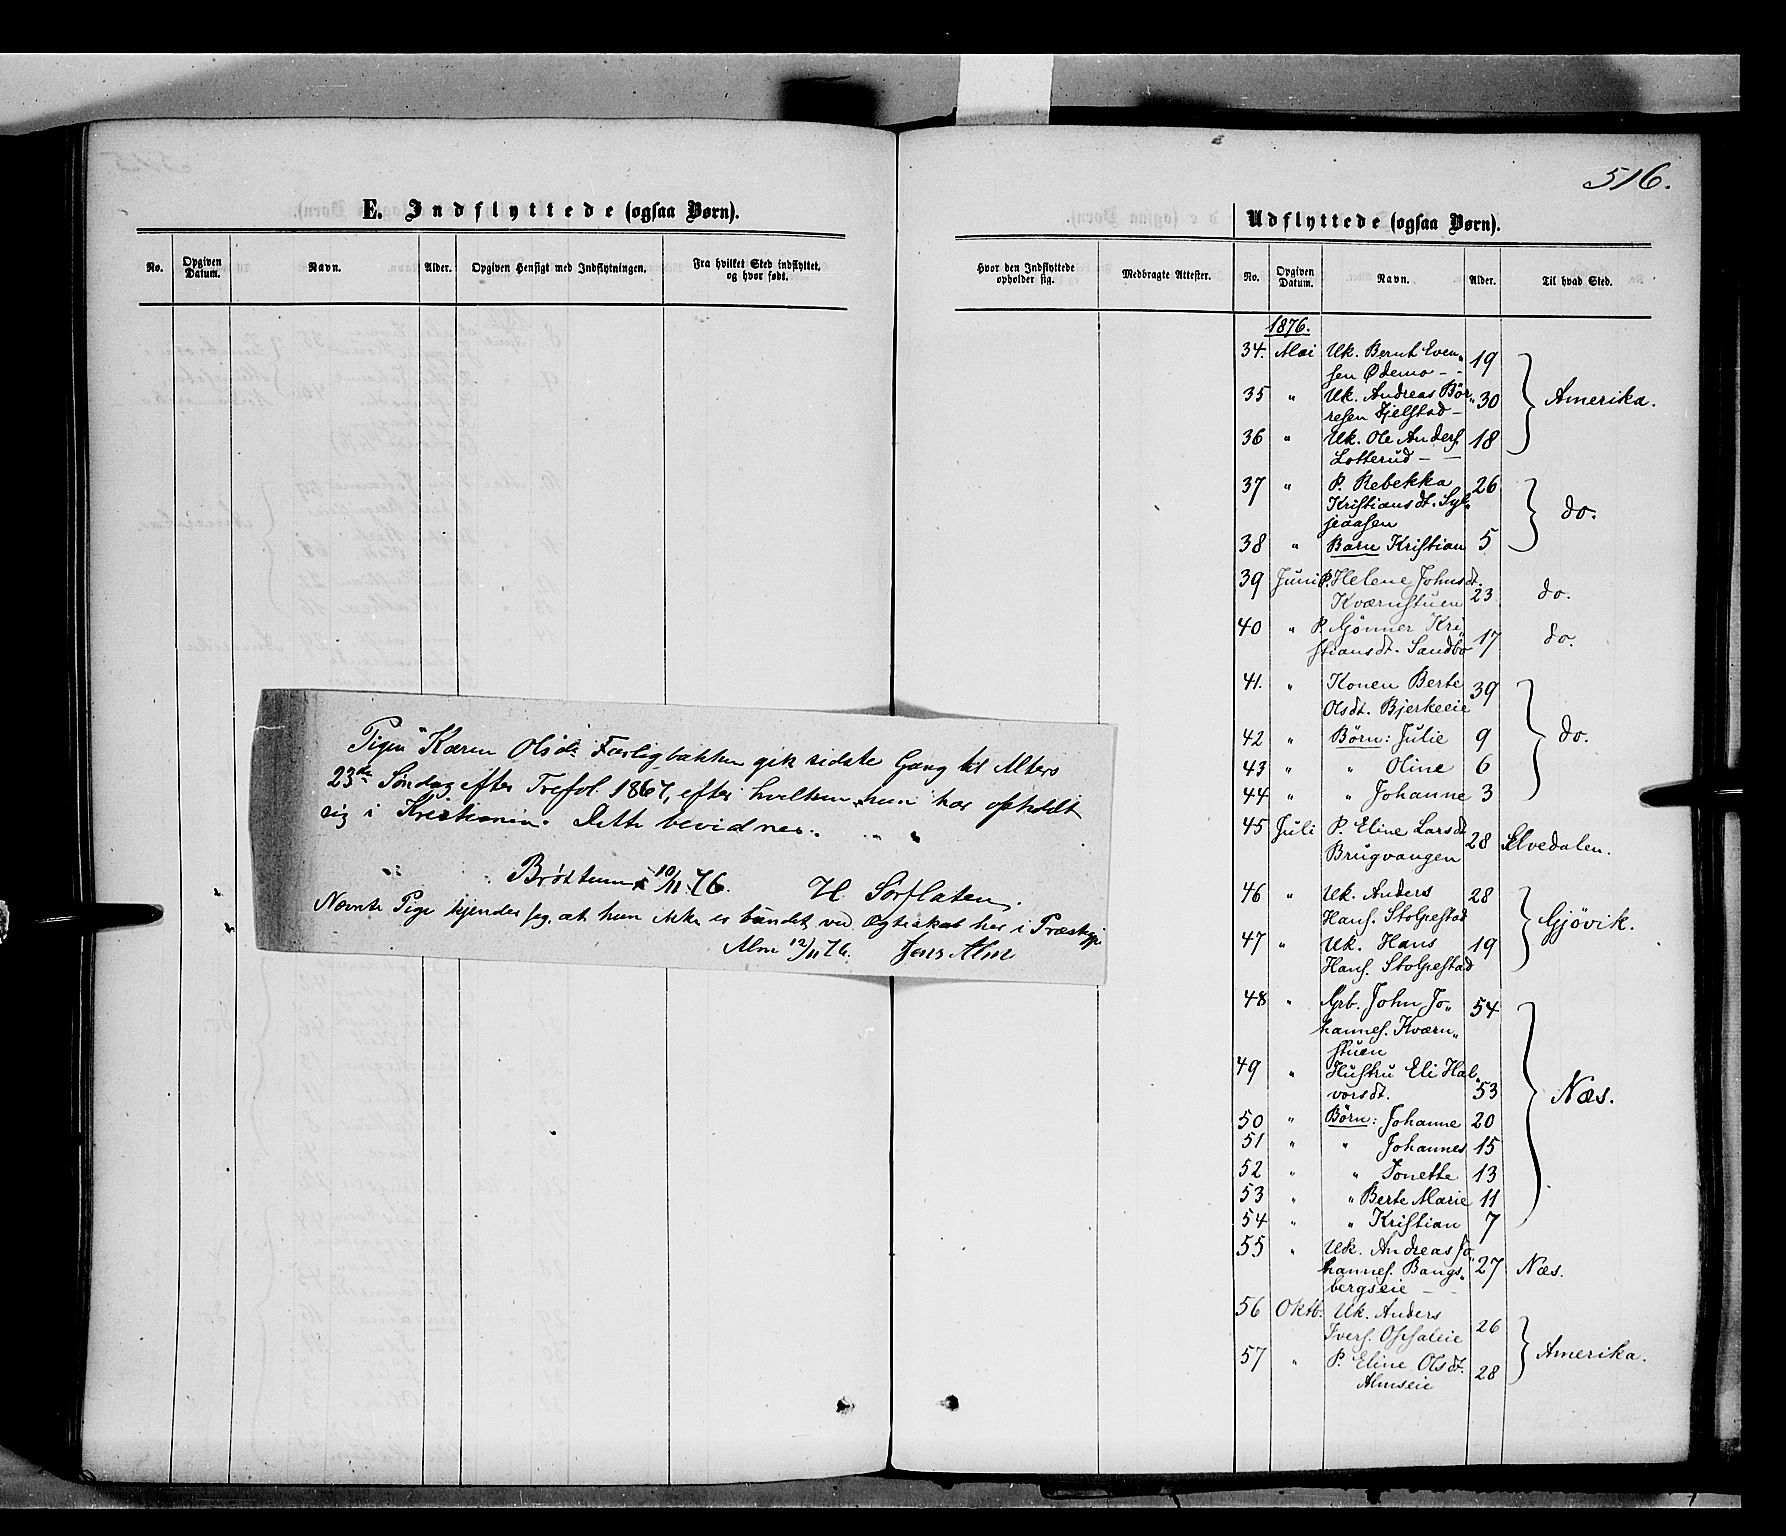 516.
E. Indflyttede (ogsaa Børn).
Udflyttede (ogsaa Børn).
No. Opgiven Datum. Navn. Alder. Opgiven Hensigt med Indflytningen. Fra hvilket Sted indflyttet, og hvor født.
Hvor den Indflyttede opholder sig. Medbragte Attester. No. Opgiven Datum. Navn. Alder. Til hvad Sted.
Pigen Karen Olsdr. gik sidste Gang til Alters
23de Søndag efter Trefol. 1867, efter hvilken hun har opholdt
sig i Kristiania. Dette bevidnes.
Brøttum 10/11 76. H Sorflaten.
Nævnte Pige kjender jeg, at hun ikke er bundet ved Ægteskab her i Præstegj
Alm 12/11 76. Jens Alm
1876.
34. Mai Uk. Bernt Even„
sen Ødemo - - 19
35 " Uk. Andreas Bör„ 30 Amerika.
resen Fjelstad -
36 " Uk. Ole Anders. 18
Lotterud - -
37 " P. Rebekka 26
Kristiansdt. Syl„ do.
jeaasen
38 " Barn Kristian 5
39 Juni P. Helene Johnsdt.
Kværnstuen 23 do.
40 " P. Gjönner Kri„
stiansdt. Sandbo 17 do.
41. " Konen Berte 39
Olsdt. Bjerkeeie
42 " Børn: Julie 9 do.
43 " " Oline 6
44 " " Johanne 3
45 Juli P. Eline Larsdt.
Brugvangen 28 Elvedalen.
46 " Uk. Anders 28
Hans. Stolpestad Gjövik.
47 " Uk. Hans 19
Hans. Stolpestad
48 " Grb. John Jo„ 54
hannes. Kværn„
stuen
49 " Hustru Eli Hal„
vorsdt. 53 Næs.
50 " Børn: Johanne 20
51 " " Johannes 15
52 " " Jonette 13
53 " " Berte Marie 11
54 " " Kristian 7
55 " Uk. Andreas Jo„
hannes. Bangs„ 27 Næs.
bergseie - -
56 Oktb. Uk. Anders
Ivers. Opsaleie 26
57 " P. Eline Olsdt. Amerika.
Almseie 28